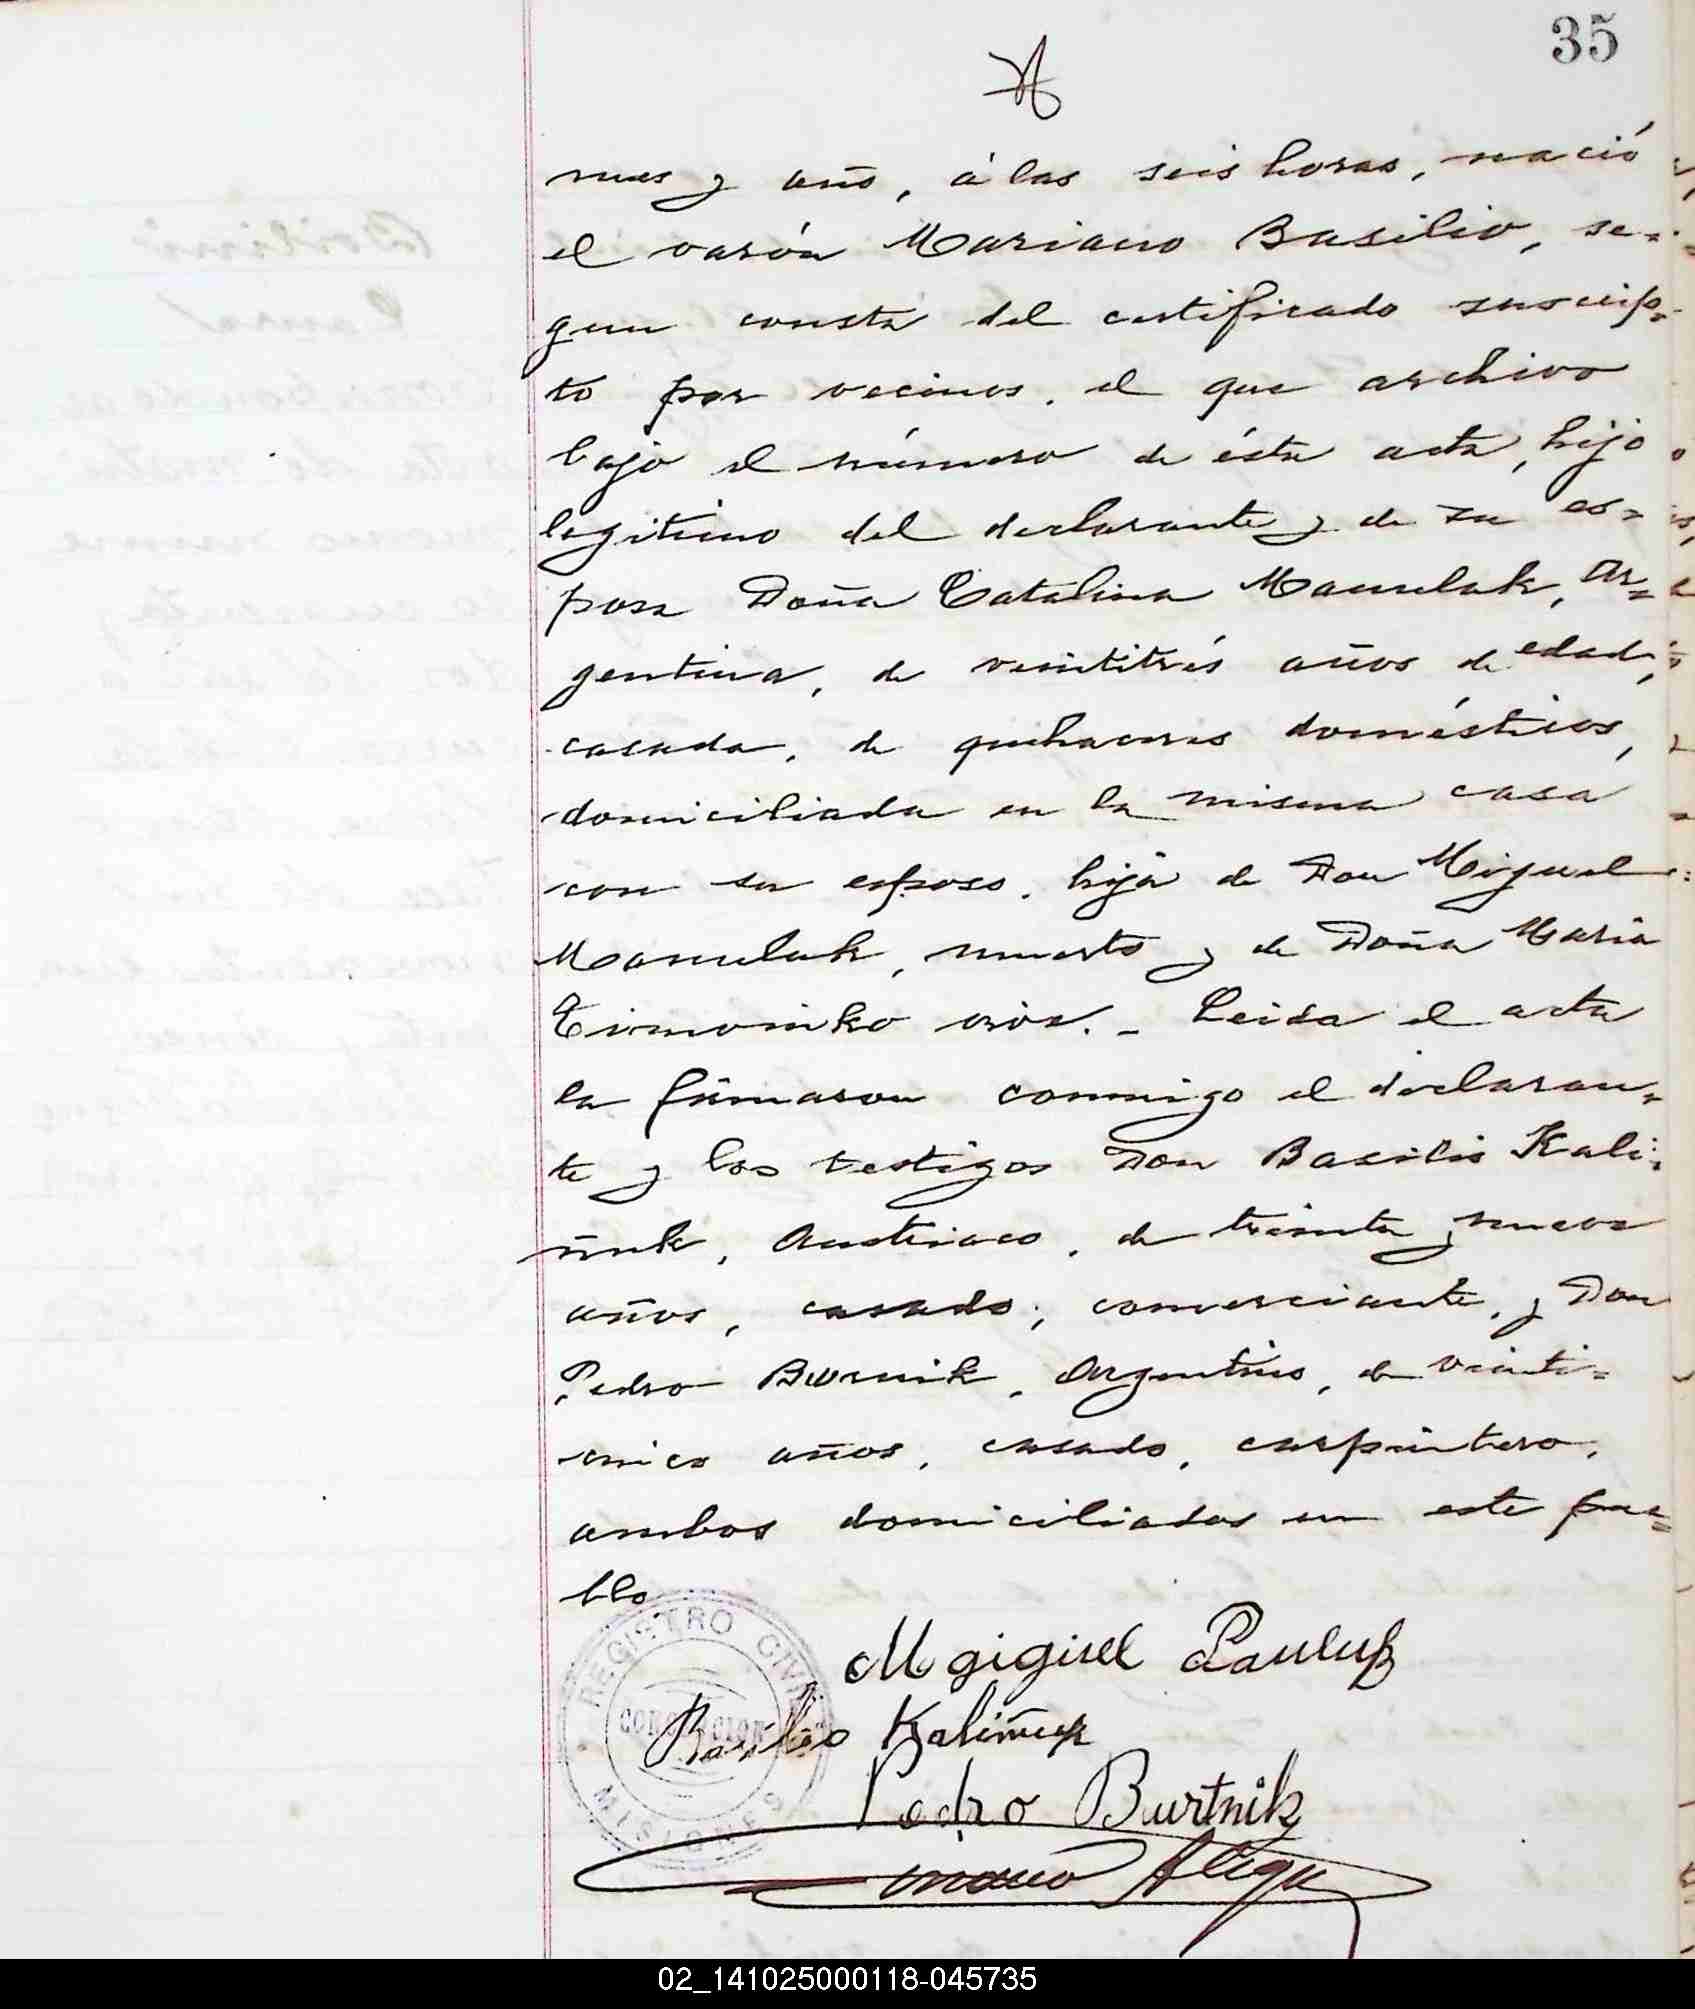 35
mes y año, á las seis horas, nació
el varón Mariano Basilio, se=
gun consta del certificado suscrip=
to por vecinos, el que archivo
bajo el número de ésta acta, hijo
legitimo del declarante y de su es=
posa Doña Catalina Manulak, Ar=
gentina, de veintitrés años de edad,
casada, de quehaceres domésticos,
domiciliada en la misma casa
con su esposo, hija de Don Miguel
Manulak, muerto y de Doña Maria
Timoniko viva. - Leida el acta
la firmaron conmigo el declaran=
te y los testigos Don Basilio Kali=
ñuk, Austriaco, de treinta y nueve
años, casado, comerciante, y Don
Pedro Burnik, Argentino, de veinti=
cinco años, casado, carpintero,
ambos domiciliados en este pue=
blo.
REGISTRO CIVIL
CONCEPCION
MISIONES
Mgigiuel Pauluk
Basilio Kaliñuk
Pedro Burtnik
02_141025000118-045735